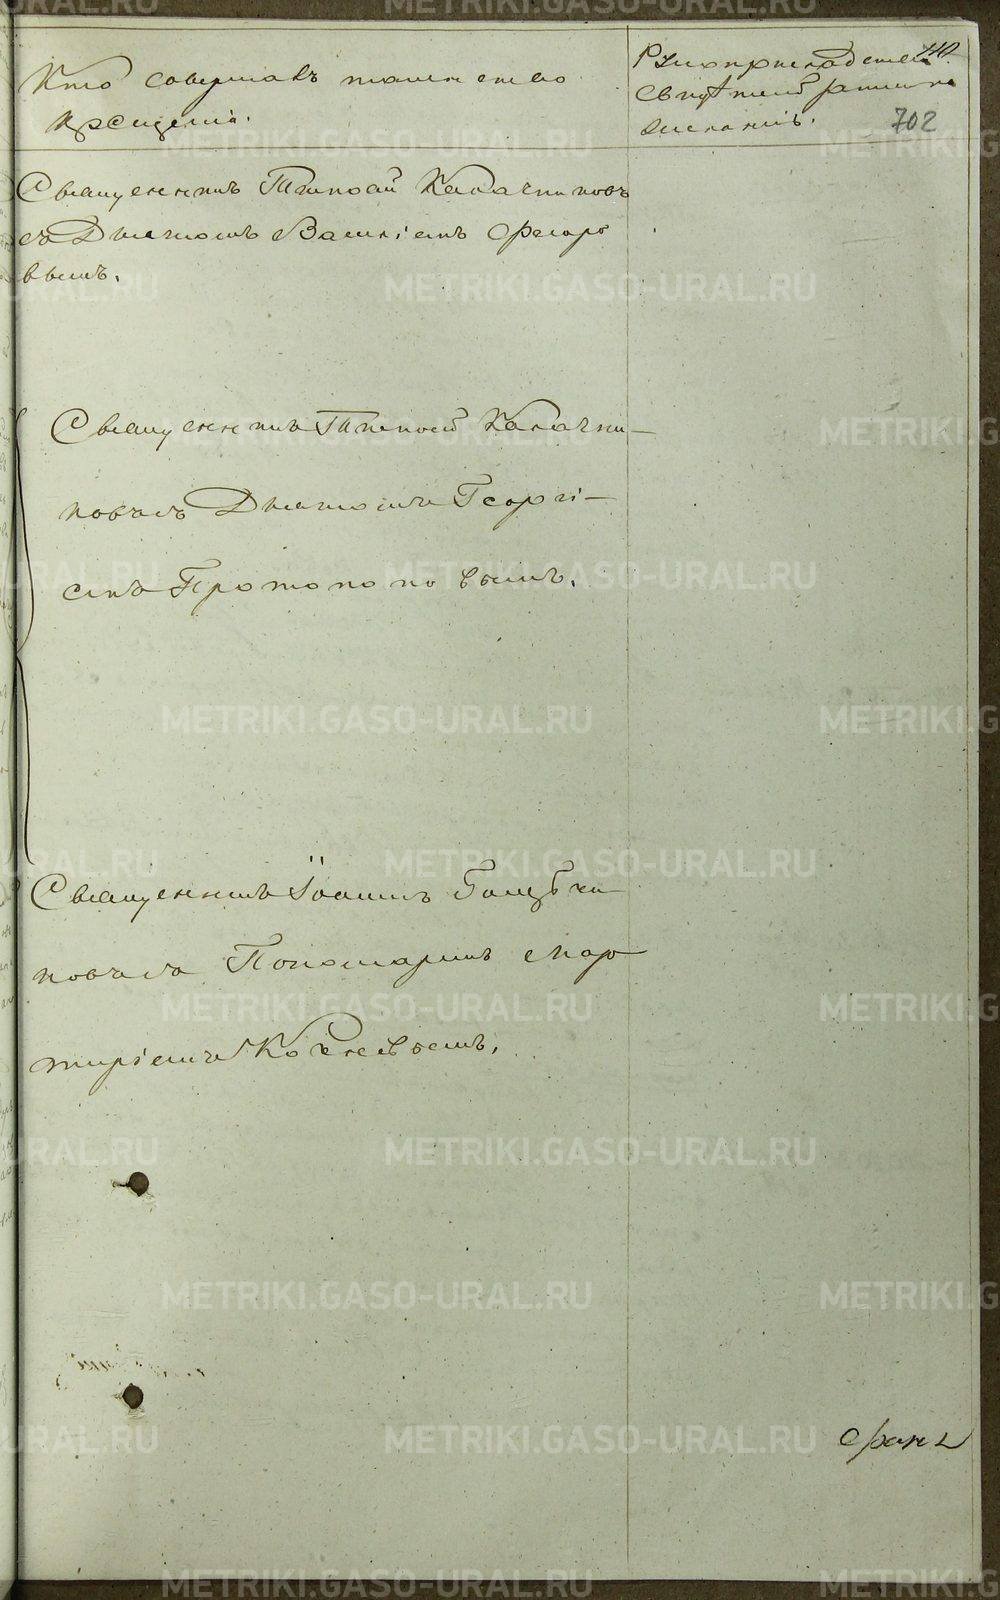 Кто совершалъ таинство
крещенія.
Рукоприкладство
свидѣтелей записи по
желанію.
110.
702
Священникъ Тимофей Калачниковъ
съ Дьячкомъ Василіемъ Флоро
вымъ.
Священникъ Тимофей Калачни-
ковъ съ Дьячкомъ Георгі-
емъ Протопоповымъ.
Священникъ Іоаннъ
ковъ съ Пономаремъ Мар
тиріемъ Кочневымъ.
METRIKI.GASO-URAL.RU